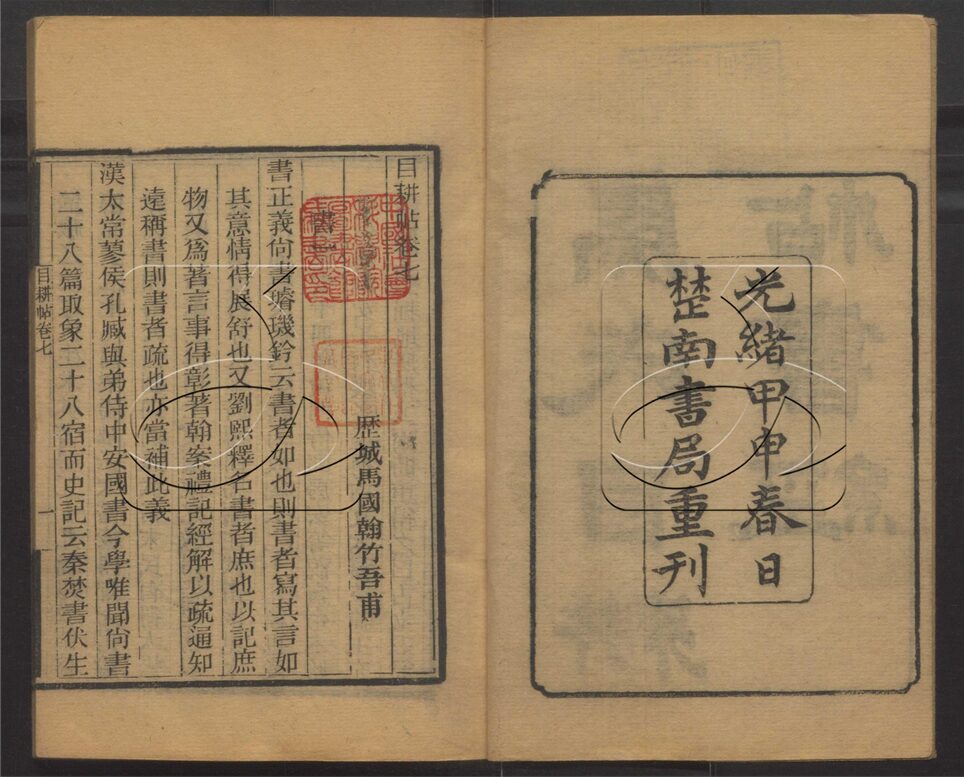 光緒甲申春日
楚南書局重刊
目耕帖卷七
歷城馬國翰竹吾甫
書一
書正義尚書璿璣鈐云書者如也則書者寫其言如
其意情得展舒也又劉熙釋名書者庶也以記庶
物又爲著言事得彰著翰案禮記經解以疏通知
遠稱書則書者疏也亦當補此義
漢太常蓼侯孔臧與弟侍中安國書今學唯聞尚書
二十八篇取象二十八宿而史記云秦焚書伏生
目耕帖卷七
一